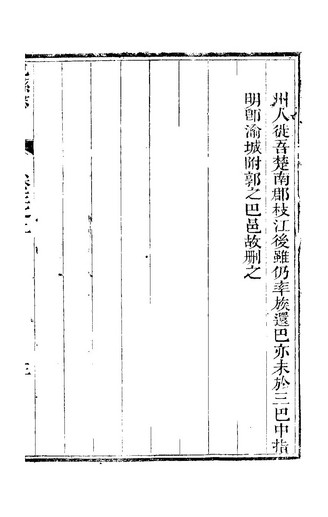 州人徙吾楚南郡枝江後雖仍率族還巴亦未於三巴中指
明卽渝城附郭之巴邑故刪之